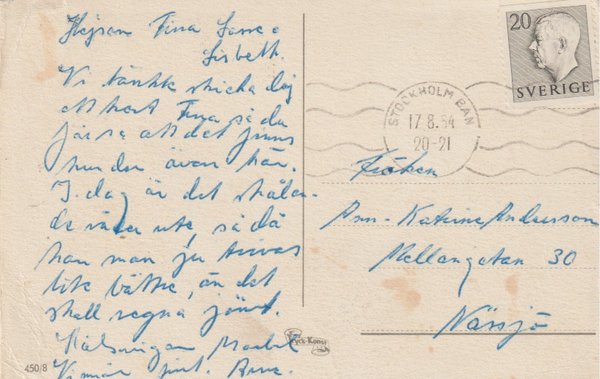 Hejsan Tina Lane o
Lisbeth.
Vi tänkte skicka dej
ett kort Tina så du
får se att det finns
hundar även här.
I dag är det strålan-
de väder ute, så då
kan man ju trivas
lite bättre, än det
skall regna jämt.
Hälsningar
450/8
20
SVERIGE
STOCKHOLM BAN
17.8.54
20-21
Fröken
Ann-Katrine Andersson
Mellangatan 30
Nässjö